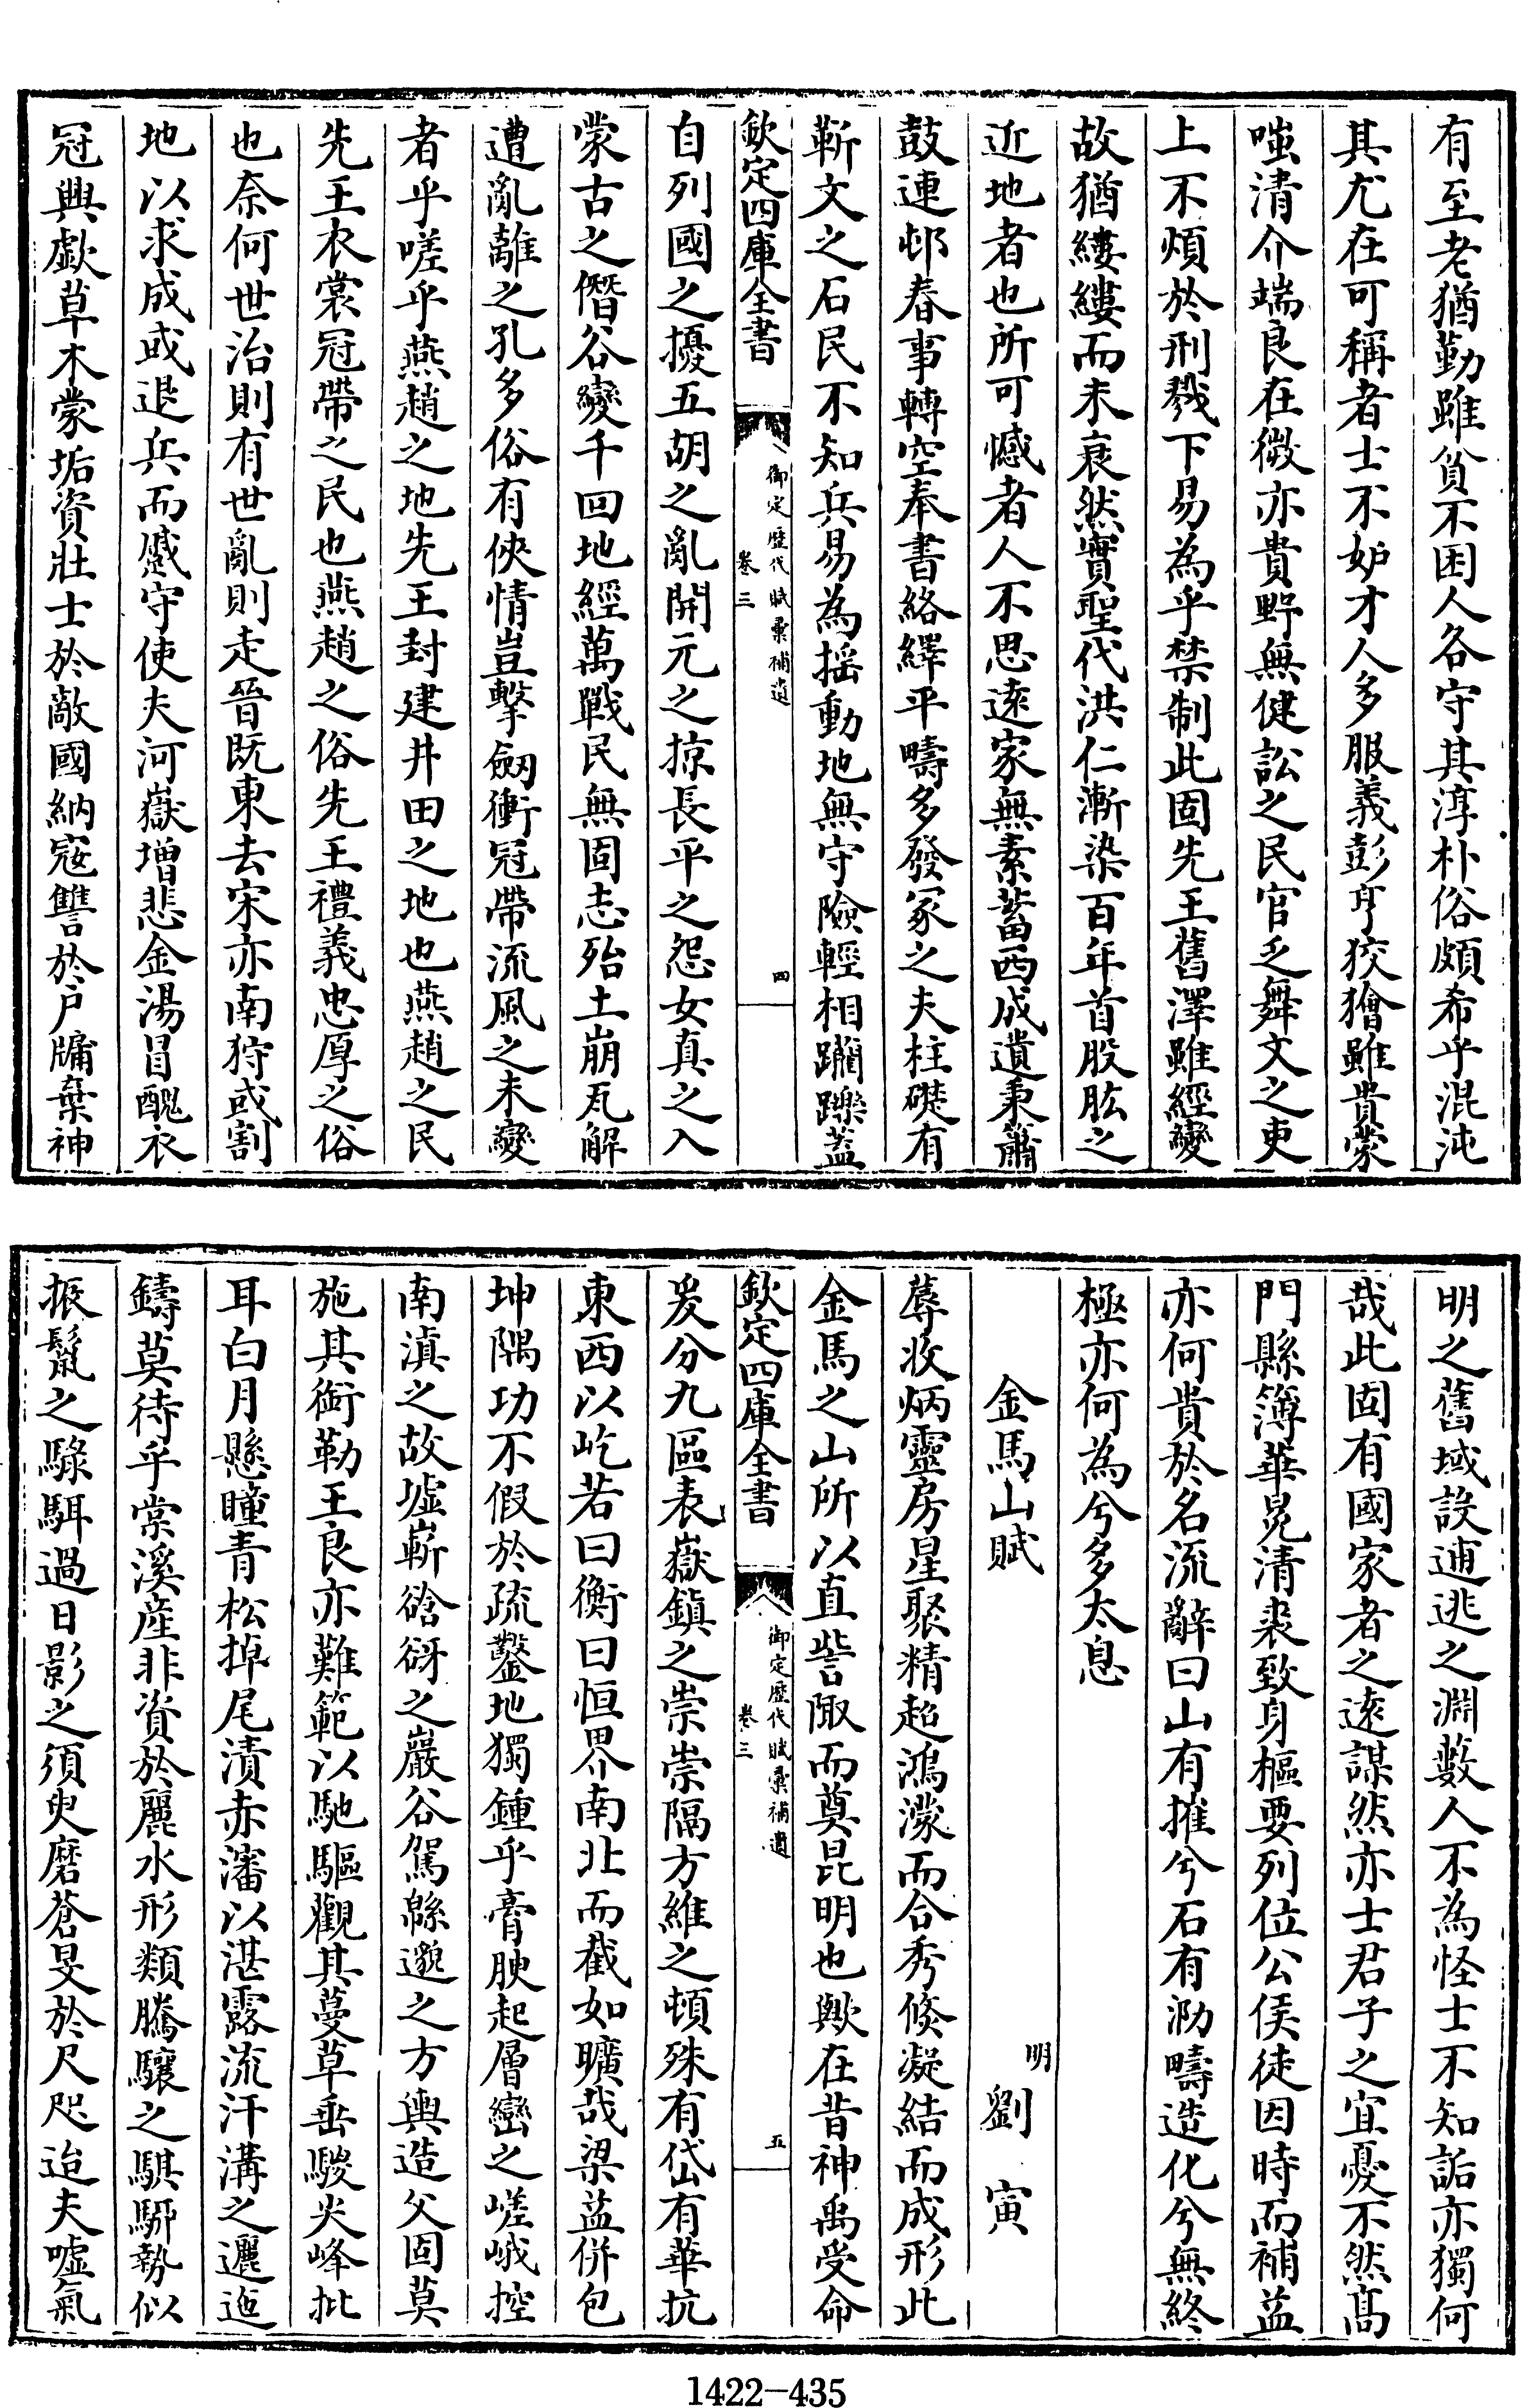 有至老猶勤雖貧不困人各守其淳朴俗頗希乎混沌
其尤在可稱者士不妒才人多服義彭亨狡獪雖貴蒙
嗤清介端良在微亦貴野無健訟之民官乏舞文之吏
上不煩於刑戮下易為乎禁制此固先王舊澤雖經變
故猶縷縷而未衰然實聖代洪仁漸染百年首股肱之
近地者也所可憾者人不思遠家無素蓄西成遺秉簫
鼓連邨春事轉空奉書絡繹平疇多發冢之夫柱礎有
靳文之石民不知兵易為揺動地無守險輕相躪轢蓋
欽定四庫全書
御定歷代賦彙補遺
卷三
四
自列國之擾五胡之亂開元之掠長平之怨女真之入
蒙古之僭谷變千回地經萬戰民無固志殆土崩瓦解
遭亂離之孔多俗有俠情豈擊劒衝冠帶流風之未變
者乎嗟乎燕趙之地先王封建井田之地也燕趙之民
先王衣裳冠帶之民也燕趙之俗先王禮義忠厚之俗
也奈何世治則有世亂則走晉既東去宋亦南狩或割
地以求成或退兵而慼守使夫河嶽增悲金湯冒醜衣
冠興歎草木蒙垢資壯士於敵國納宼讐於戸牖棄神
明之舊域設逋逃之淵藪人不為怪士不知詬亦獨何
哉此固有國家者之遠謀然亦士君子之宜憂不然髙
門縣簿華晃清裘致身樞要列位公侯徒因時而補益
亦何貴於名流辭曰山有摧兮石有泐疇造化兮無終
極亦何為兮多太息
金馬山賦
明劉寅
蓐收炳靈房星聚精超鴻濛而合秀倏凝結而成形此
金馬之山所以直訾陬而奠昆明也歟在昔神禹受命
欽定四庫全書
御定歷代賦彙補遺
卷三
五
爰分九區表嶽鎮之崇崇隔方維之頓殊有岱有華抗
東西以屹若曰衡曰恒界南北而截如曠哉梁益併包
坤隅功不假於疏鑿地獨鍾乎膏腴起層巒之嵯峨控
南滇之故墟嶄谽谺之巖谷駕緜邈之方輿造父固莫
施其銜勒王良亦難範以馳驅觀其蔓草垂駿尖峰批
耳白月懸瞳青松掉尾漬赤瀋以湛露流汗溝之邐迤
鑄莫待乎棠溪産非資於麗水形類騰驤之騏駵勢似
振鬛之騄駬過日影之須臾磨蒼旻於尺咫迨夫噓氣
1422-435